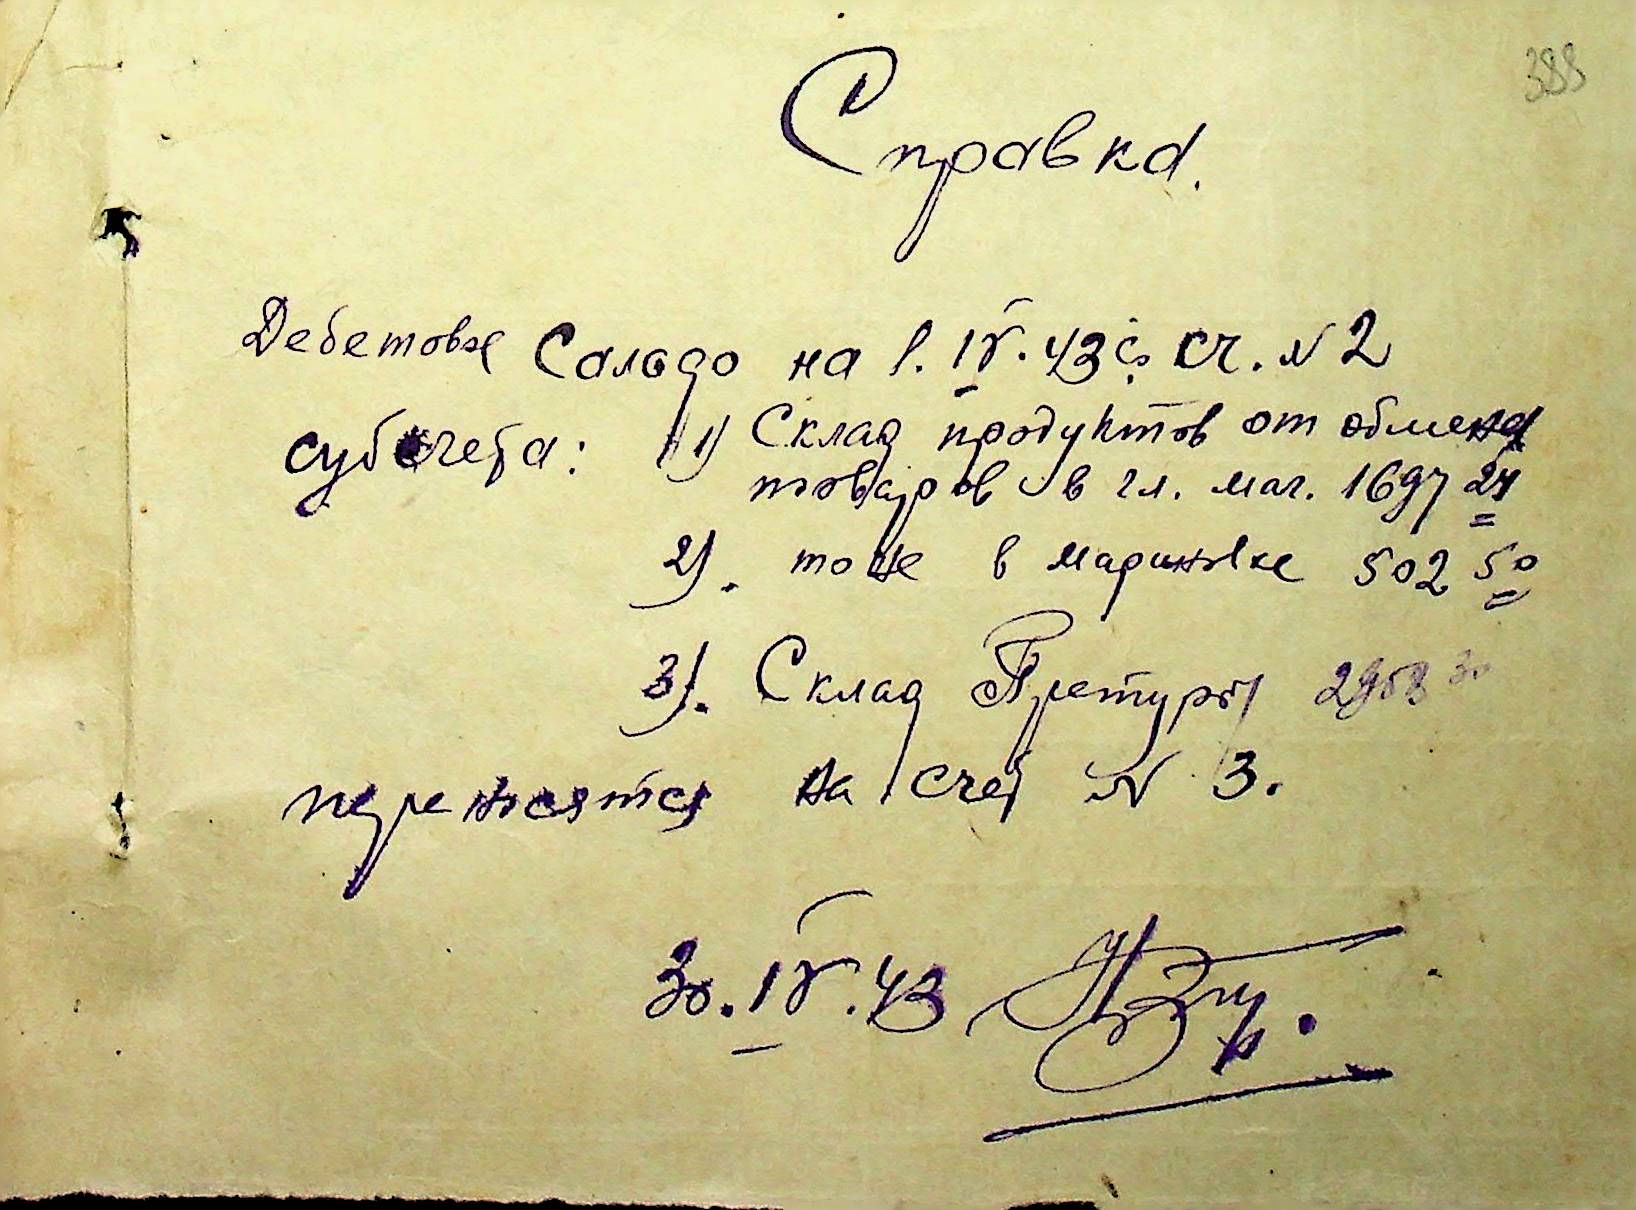 388
Справка.
Дебетовые Сальдо на 1. IV. 43 г. сч. № 2
субсчета: 1) Склад продуктов от обмена
товаров в гл. маг. 1697 24
2). тоже в Мариновке 502 50
3). Склад Претуры 2958 30
переносятся на счет № 3.
30. IV. 43